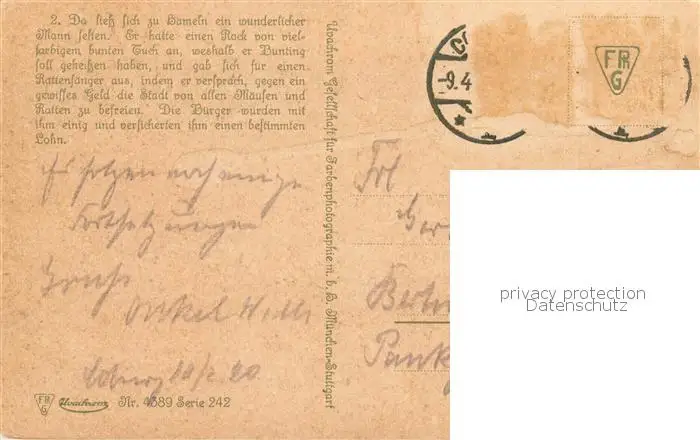 2. Da ließ sich zu Hameln ein wunderlicher
Mann sehen. Er hatte einen Rock von viel-
farbigem bunten Tuch an, weshalb er Bunting
soll geheißen haben, und gab sich für einen
Rattenfänger aus, indem er versprach, gegen ein
gewisses Geld die Stadt von allen Mäusen und
Ratten zu befreien. Die Bürger wurden mit
ihm einig und versicherten ihm einen bestimmten
Lohn.
Es folgen noch einige
Fortsetzungen
Gruß
Onkel Willi
Coburg
FRG
Uvachrom Nr. 4389 Serie 242
Uvachrom Gesellschaft für Farbenphotographie m. b. H. München-Stuttgart
-9.4
FRG
Frl
Ger
Berlin
Pank
privacy protection
Datenschutz